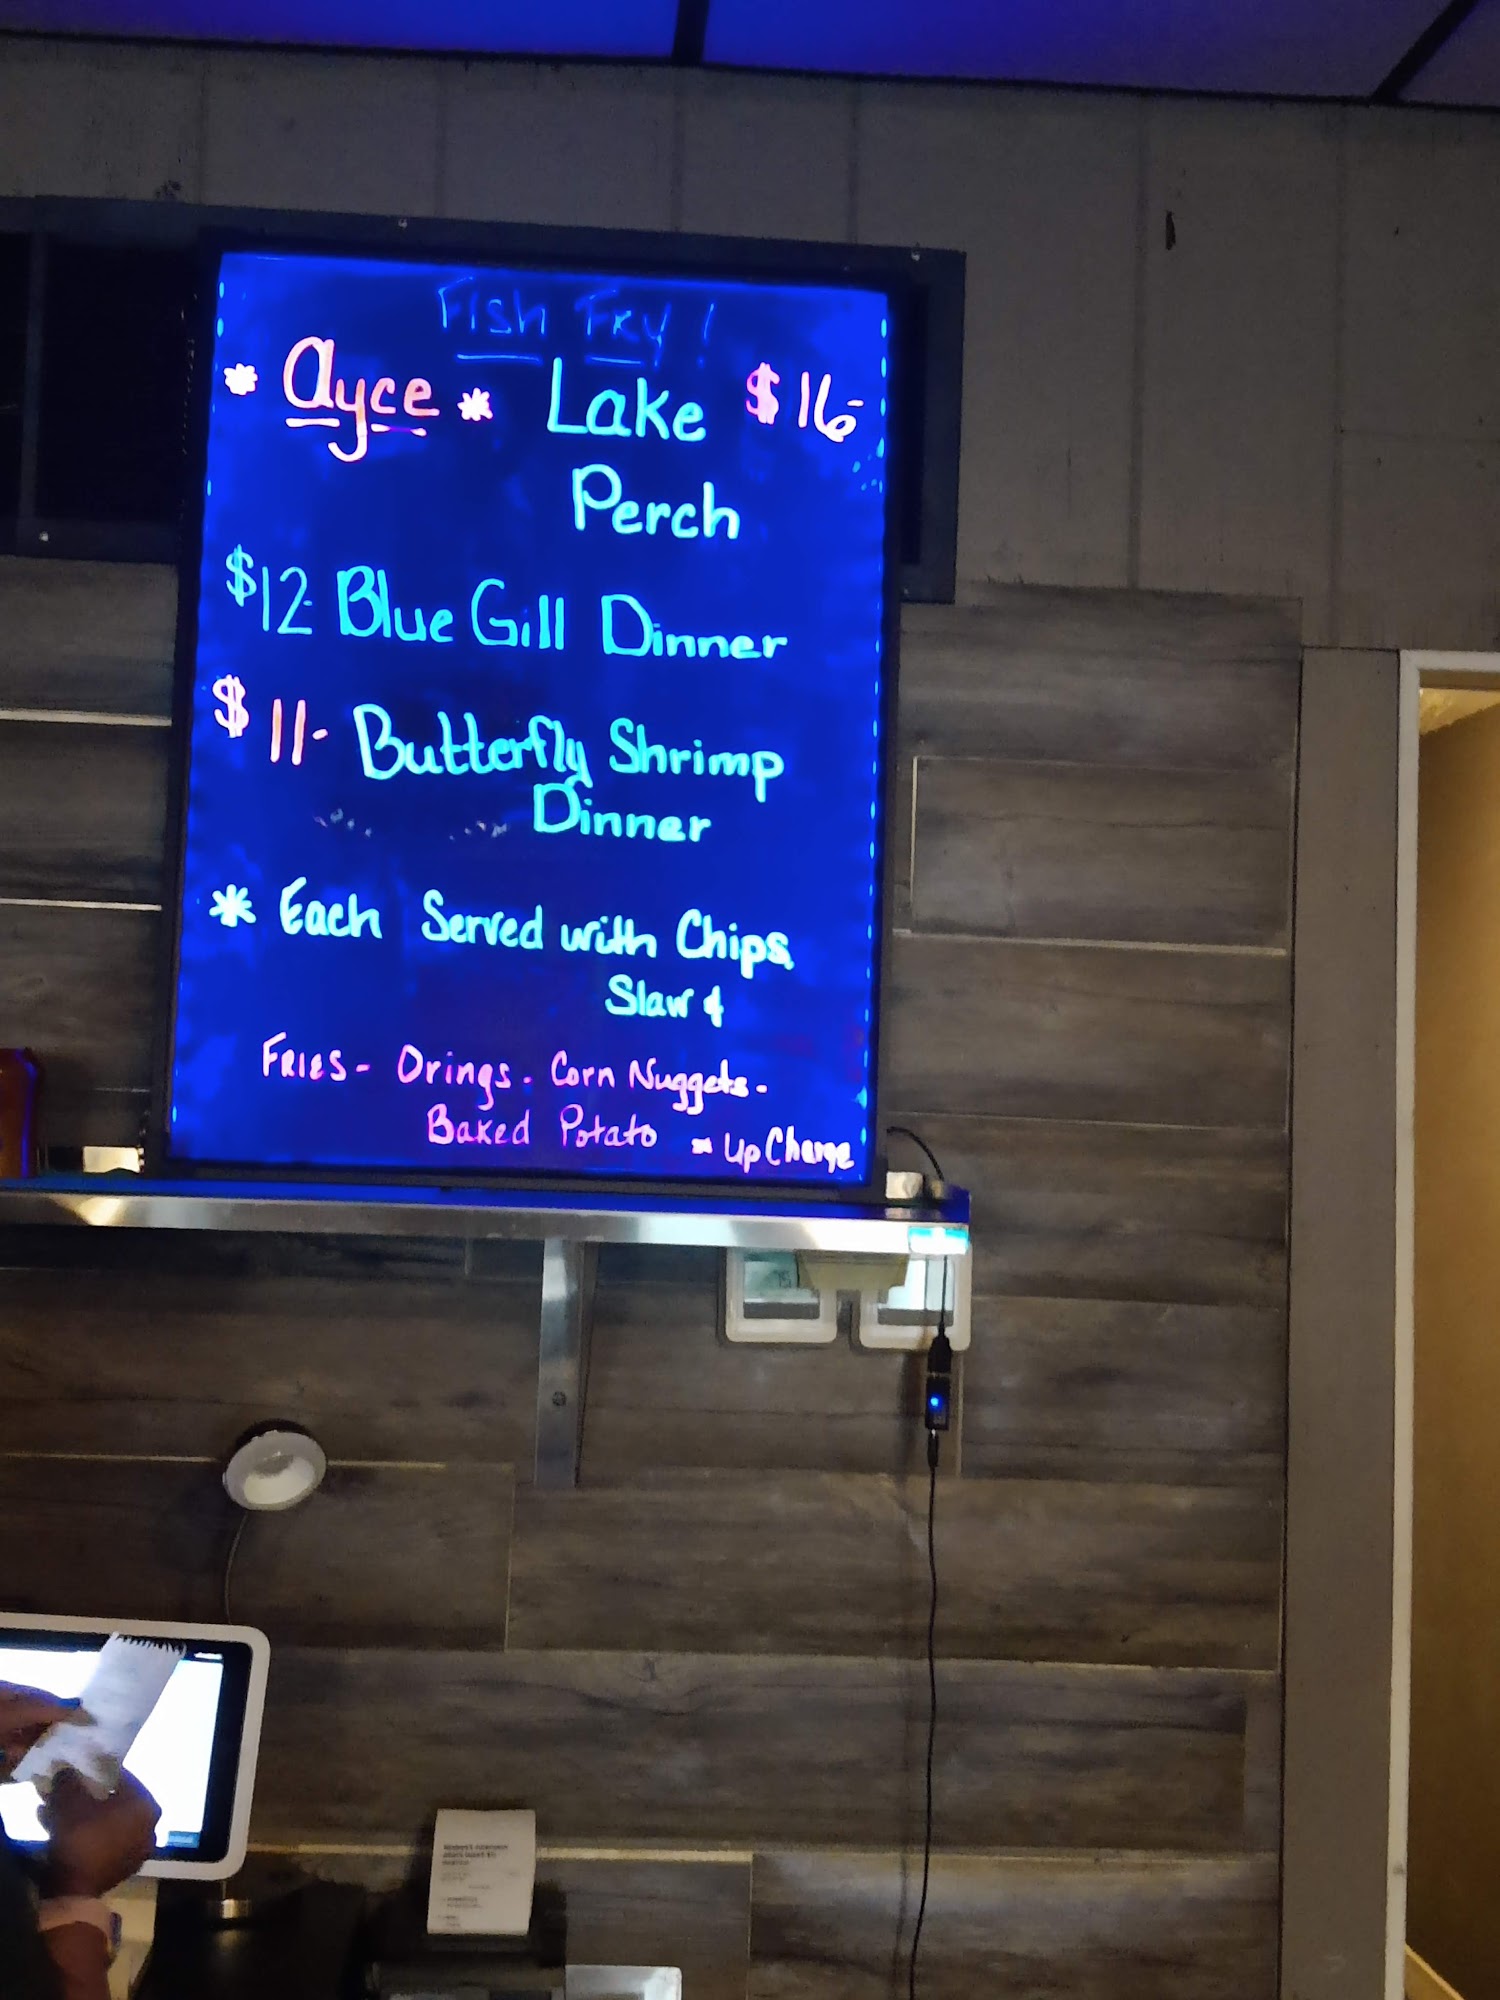 Fish Fry!
* Ayce * Lake $16-
Perch
$12- Blue Gill Dinner
$11- Butterfly Shrimp
Dinner
* Each Served with Chips
Slaw &
Fries - Orings - Corn Nuggets -
Baked Potato = Up Charge